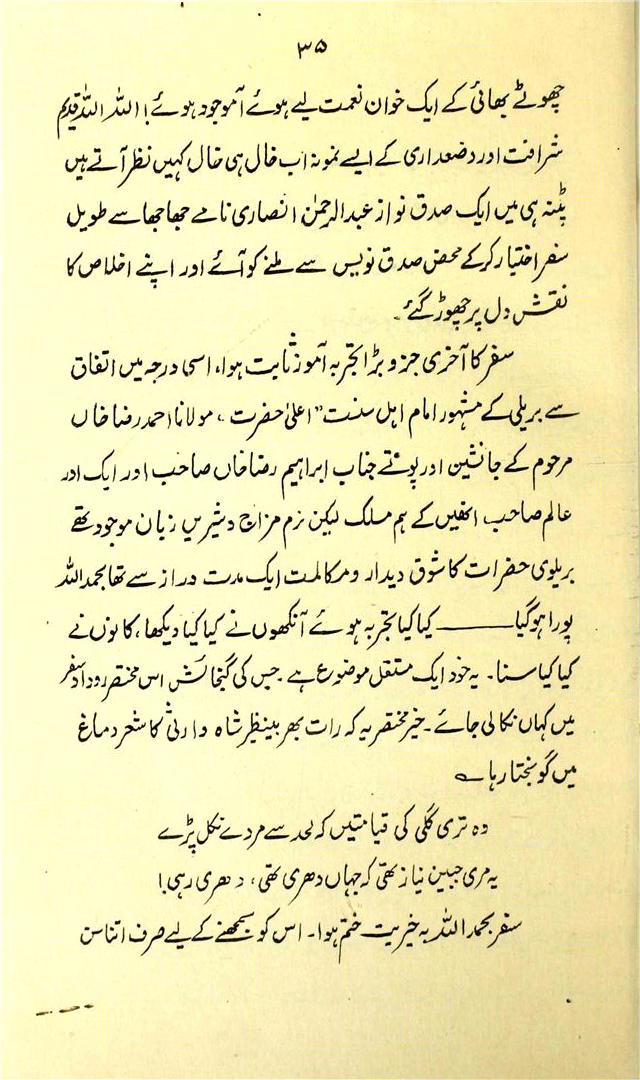 ۳۵
چھوٹے بھائی کے ایک خوان نعمت لیے ہوئے آموجود ہوئے! اللہ اللہ قدیم
شرافت اور وضعداری کے ایسے نمونہ اب خال ہی خال کہیں نظر آتے ہیں
پٹنہ ہی میں ایک صدق نواز عبدالرحمٰن انصاری نامے جھاجھا سے طویل
سفر اختیار کرکے محض صدق نویس سے ملنے کو آئے اور اپنے اخلاص کا
نقش دل پر چھوڑ گئے۔
سفر کا آخری جزو بڑا تجربہ آموز ثابت ہوا، اسی درجہ میں اتفاق
سے بریلی کے مشہور امام اہل سنت "اعلیٰ حضرت، مولانا احمد رضا خاں
مرحوم کے جانشین اور پوتے جناب ابراہیم رضا خاں صاحب اور ایک اور
عالم صاحب انھیں کے ہم مسلک لیکن نرم مزاج و شیریں زبان موجود تھے
بریلوی حضرات کا شوق دیدار و مکالمت ایک مدت دراز سے تھا بحمد اللہ
پورا ہوگیا ——— کیا کیا تجربہ ہوئے آنکھوں نے کیا کیا دیکھا، کانوں نے
کیا کیا سنا۔ یہ خود ایک مستقل موضوع ہے جس کی گنجائش اس مختصر روداد سفر
میں کہاں نکالی جائے۔ خیر مختصر یہ کہ رات بھر بینظیر شاہ وارثی کا شعر دماغ
میں گونجتا رہا ؎
وہ تری گلی کی قیامتیں کہ لحد سے مردے نکل پڑے
یہ مری جبین نیاز تھی کہ جہاں دھری تھی، دھری رہی!
سفر بحمد اللہ بہ خیریت ختم ہوا۔ اس کو سمجھنے کے لیے صرف اتنا سن